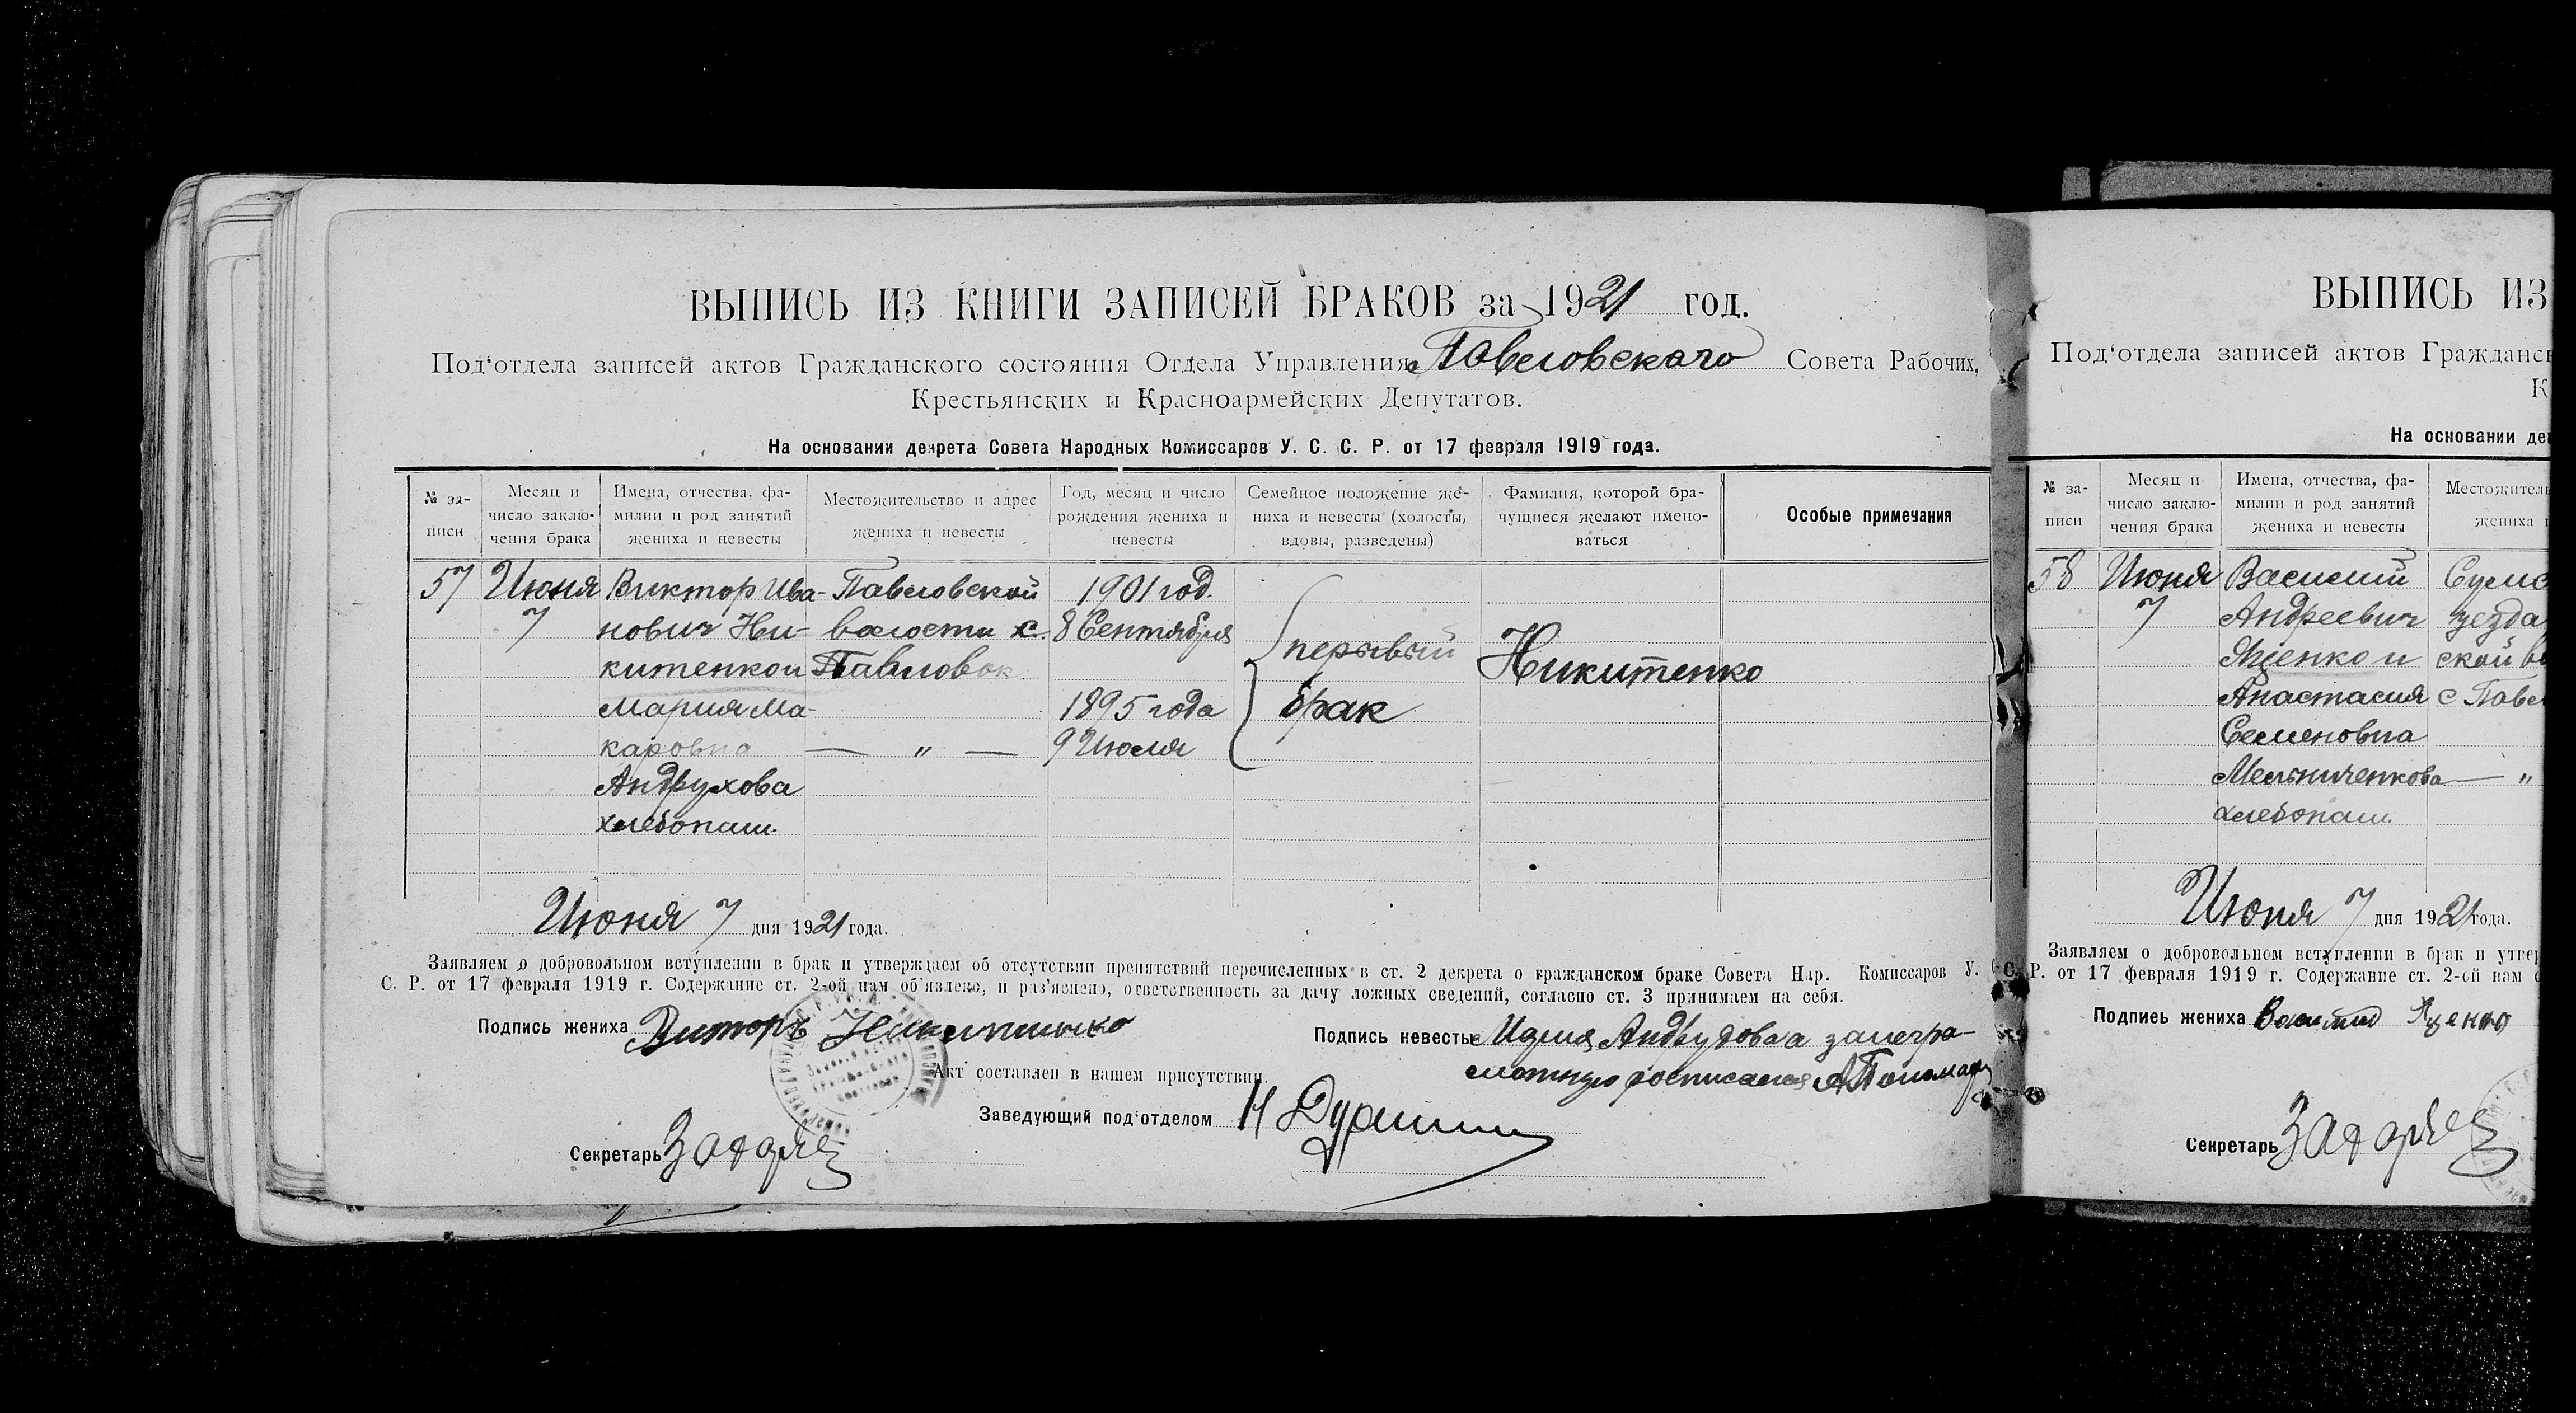 ВЫПИСЬ ИЗ КНИГИ ЗАПИСЕЙ БРАКОВ за 1921 год.
Под'отдела записей актов Гражданского состояния Отдела Управления Павловского Совета Рабочих,
Крестьянских и Красноармейских Депутатов.
На основании декрета Совета Народных Комиссаров У. С. С. Р. от 17 февраля 1919 года.
№ за-
писи
Месяц и
число заклю-
чения брака
Имена, отчества, фа-
милии и род занятий
жениха и невесты
Местожительство и адрес
жениха и невесты
Год, месяц и число
рождения жениха и
невесты
Семейное положение же-
ниха и невесты (холосты,
вдовы, разведены)
Фамилия, которой бра-
чущиеся желают имено-
ваться
Особые примечания
57
Июня
7
Виктор Ива-
нович Ни-
китенко и
Мария Ма-
каровна
Андрухова
хлебопаш.
Павловской
волости с.
Павловок
— " —
1901 год.
8 Сентября
1895 года
9 Июля
первый
брак
Никитенко
Июня 7 дня 1921 года.
Заявляем о добровольном вступлении в брак и утверждаем об отсутствии препятствий перечисленных в ст. 2 декрета о гражданском браке Совета Нар. Комиссаров У. С.
С. Р. от 17 февраля 1919 г. Содержание ст. 2-ой нам об'явлено, и раз'яснено, ответственность за дачу ложных сведений, согласно ст. 3 принимаем на себя.
Подпись жениха
Подпись невесты
Акт составлен в нашем присутствии.
Заведующий под'отделом
Секретарь
ВЫПИСЬ ИЗ
Под'отдела записей актов Гражданс
К
На основании де
№ за-
писи
Месяц и
число заклю-
чения брака
Имена, отчества, фа-
милии и род занятий
жениха и невесты
Местожитель
жениха
58
Июня
7
Василий
Андреевич
Яценко и
Анастасия
Семеновна
Мельниченкова
хлебопаш.
Сумс
уезда
ской во
с Павл
— "
Июня 7 дня 1921 года.
Заявляем о добровольном вступлении в брак и утвер
Р. от 17 февраля 1919 г. Содержание ст. 2-ой нам
Подпись жениха
Секретарь